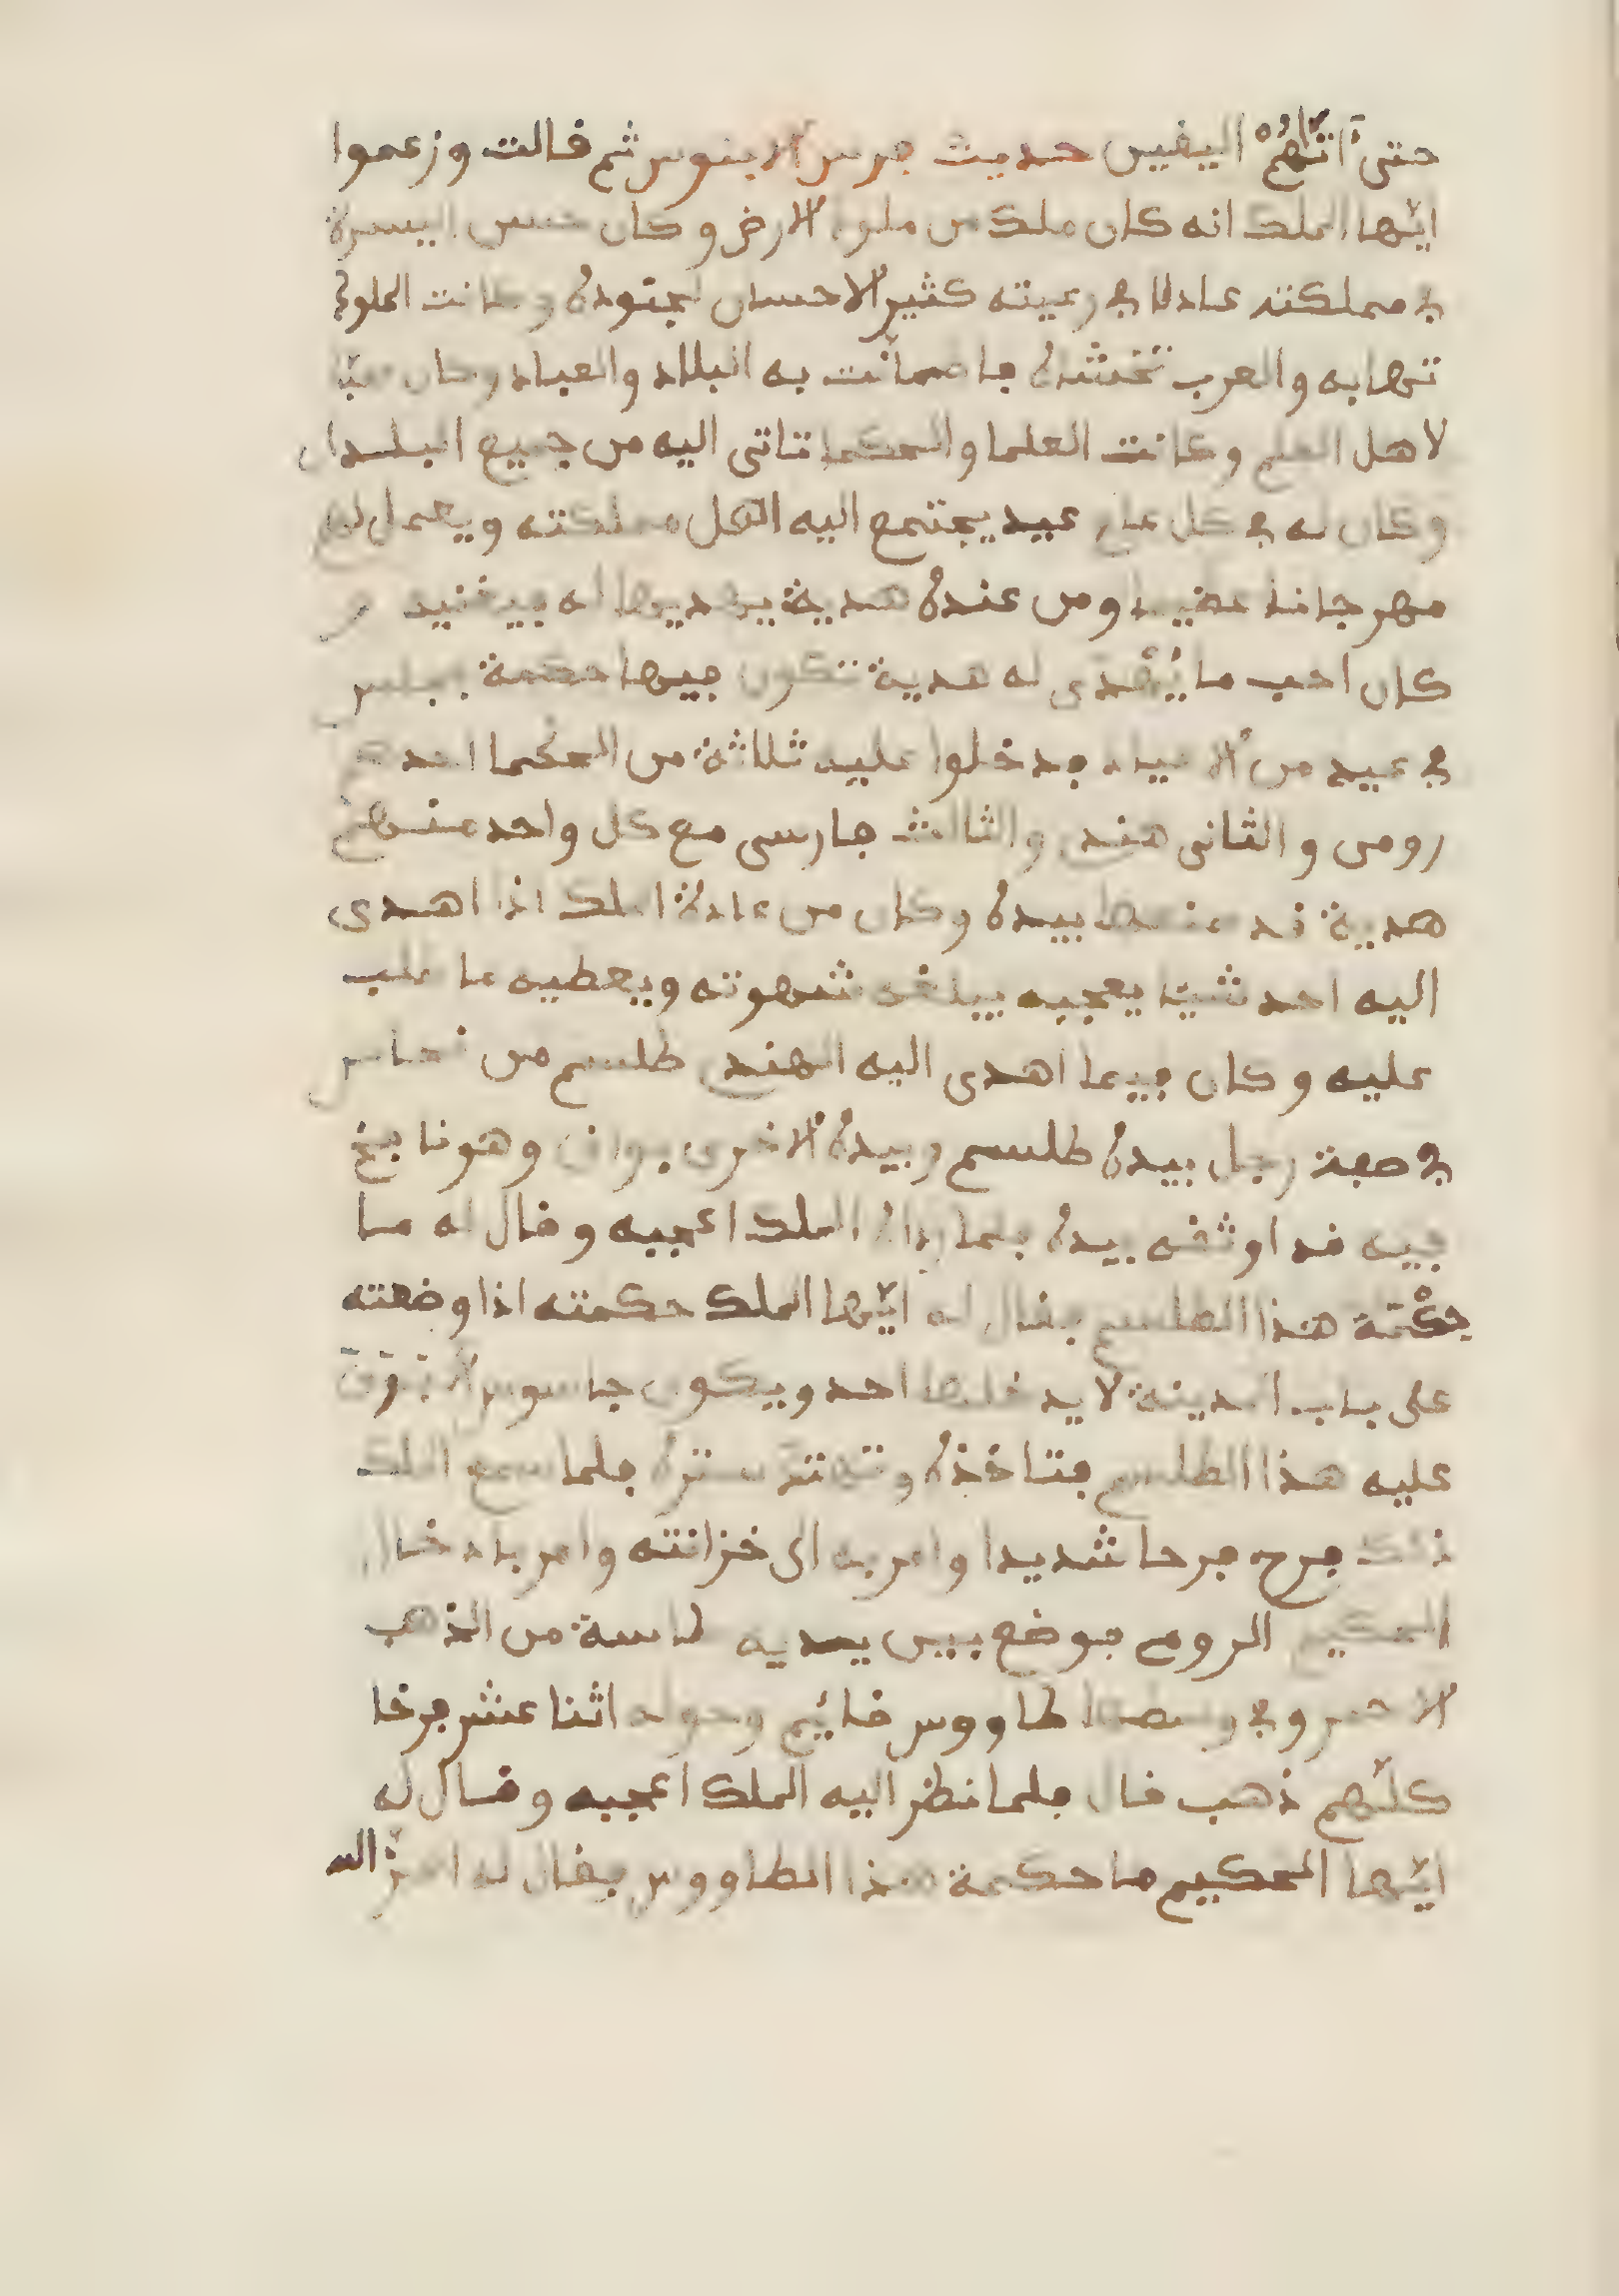 حتى أتاهم اليقين حديث فرس الابنوس ثم قالت وزعموا
ايّها الملك انه كان ملك من ملوك الارض وكان حسن السيرة
في مملكته عادلا في رعيته كثير الاحسان لجنوده وكانت الملوك
تهابه والعرب تخشاه فاطمأنت به البلاد والعباد وكان محبّا
لاهل العلم وكانت العلما والحكما تاتى اليه من جميع البلدان
وكان له في كل عام عيد يجتمع اليه اهل مملكته ويعمل لهم
مهرجانا عظيما ومن عنده هدية يهديها له
كان احب ما يُهْدَى له هدية تكون فيها حكمة فجلس
في عيد من الاعياد فدخلوا عليه ثلاثة من الحكما احدهم
رومى والثانى هندي والثالث فارسى مع كل واحد منهم
هدية قد صنعها بيده وكان من عادة الملك اذا اهدى
اليه احد شيئا يعجبه يبلغه شهوته ويعطيه ما طلب
عليه وكان فيما اهدى اليه الهندي طلسم من نحاس
في صفة رجل بيده طلسم وبيده الاخرى بوق وهو نافخ
فيه قد اوثقه بيده فلما رءاه الملك اعجبه وقال له ما
حِكْمَة هذا الطلسم فقال له ايّها الملك حكمته اذا وضعته
على باب المدينة لا يدخلها احد ويكون جاسوس الا
عليه هذا الطلسم فتاخذه وتهتك ستره فلما سمع الملك
ذلك فرح فرحا شديدا وامر به الى خزانته وامر بادخال
الحكيم الرومي فوضع بين يديه طاسة من الذهب
الاحمر وفي وسطها طاووس قايم وحوله اثنا عشر فرخا
كلّهم ذهب قال فلما نظر اليه الملك اعجبه وقال له
ايّها الحكيم ما حكمة هذا الطاووس فقال له اعزّ الله